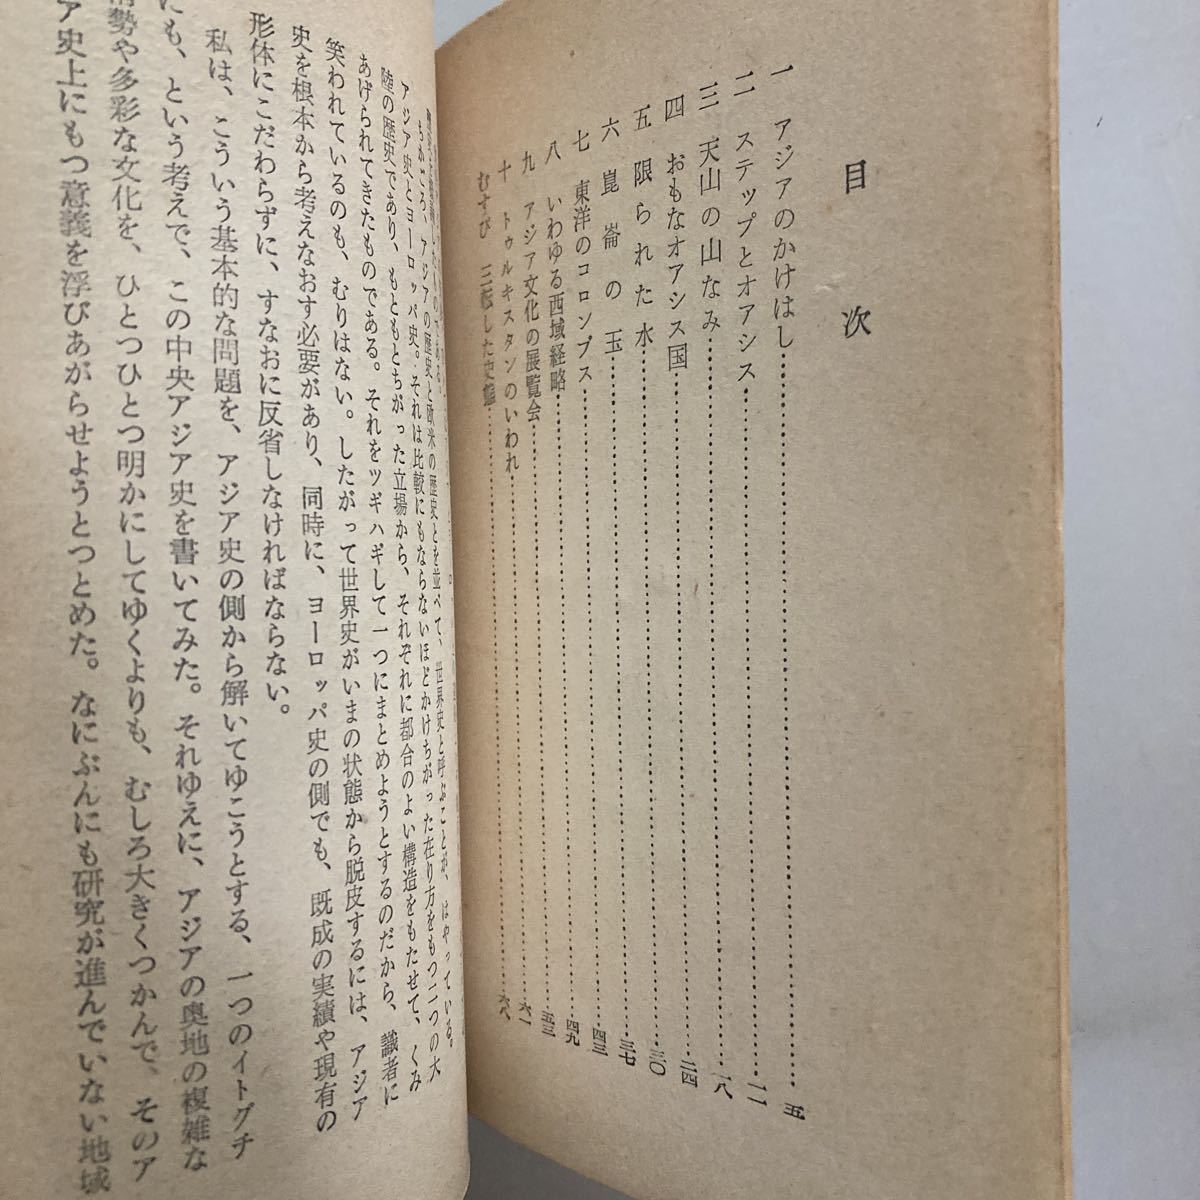 目次
一 アジアのかけはし……五
二 ステップとオアシス……一一
三 天山の山なみ……一八
四 おもなオアシス国……二四
五 限られた水……三〇
六 崑崙の玉……三七
七 東洋のコロンブス……四三
八 いわゆる西域経略……四九
九 アジア文化の展覧会……五三
十 トゥルキスタンのいわれ……六一
むすび 三転した史態……六八
ちかごろ、アジアの歴史と欧米の歴史とを並べて、世界史と呼ぶことが、はやっている。
アジア史とヨーロッパ史。それは比較にもならないほどかけちがった在り方をもつ二つの大
陸の歴史であり、もともとちがった立場から、それぞれに都合のよい構造をもたせて、くみ
あげられてきたものである。それをツギハギして一つにまとめようとするのだから、識者に
笑われているのも、むりはない。したがって世界史がいまの状態から脱皮するには、アジア
史を根本から考えなおす必要があり、同時に、ヨーロッパ史の側でも、既成の実績や現有の
形体にこだわらずに、すなおに反省しなければならない。
私は、こういう基本的な問題を、アジア史の側から解いてゆこうとする、一つのイトグチ
にも、という考えで、この中央アジア史を書いてみた。それゆえに、アジアの奥地の複雑な
情勢や多彩な文化を、ひとつひとつ明かにしてゆくよりも、むしろ大きくつかんで、そのア
ア史上にもつ意義を浮びあがらせようとつとめた。なにぶんにも研究が進んでいない地域